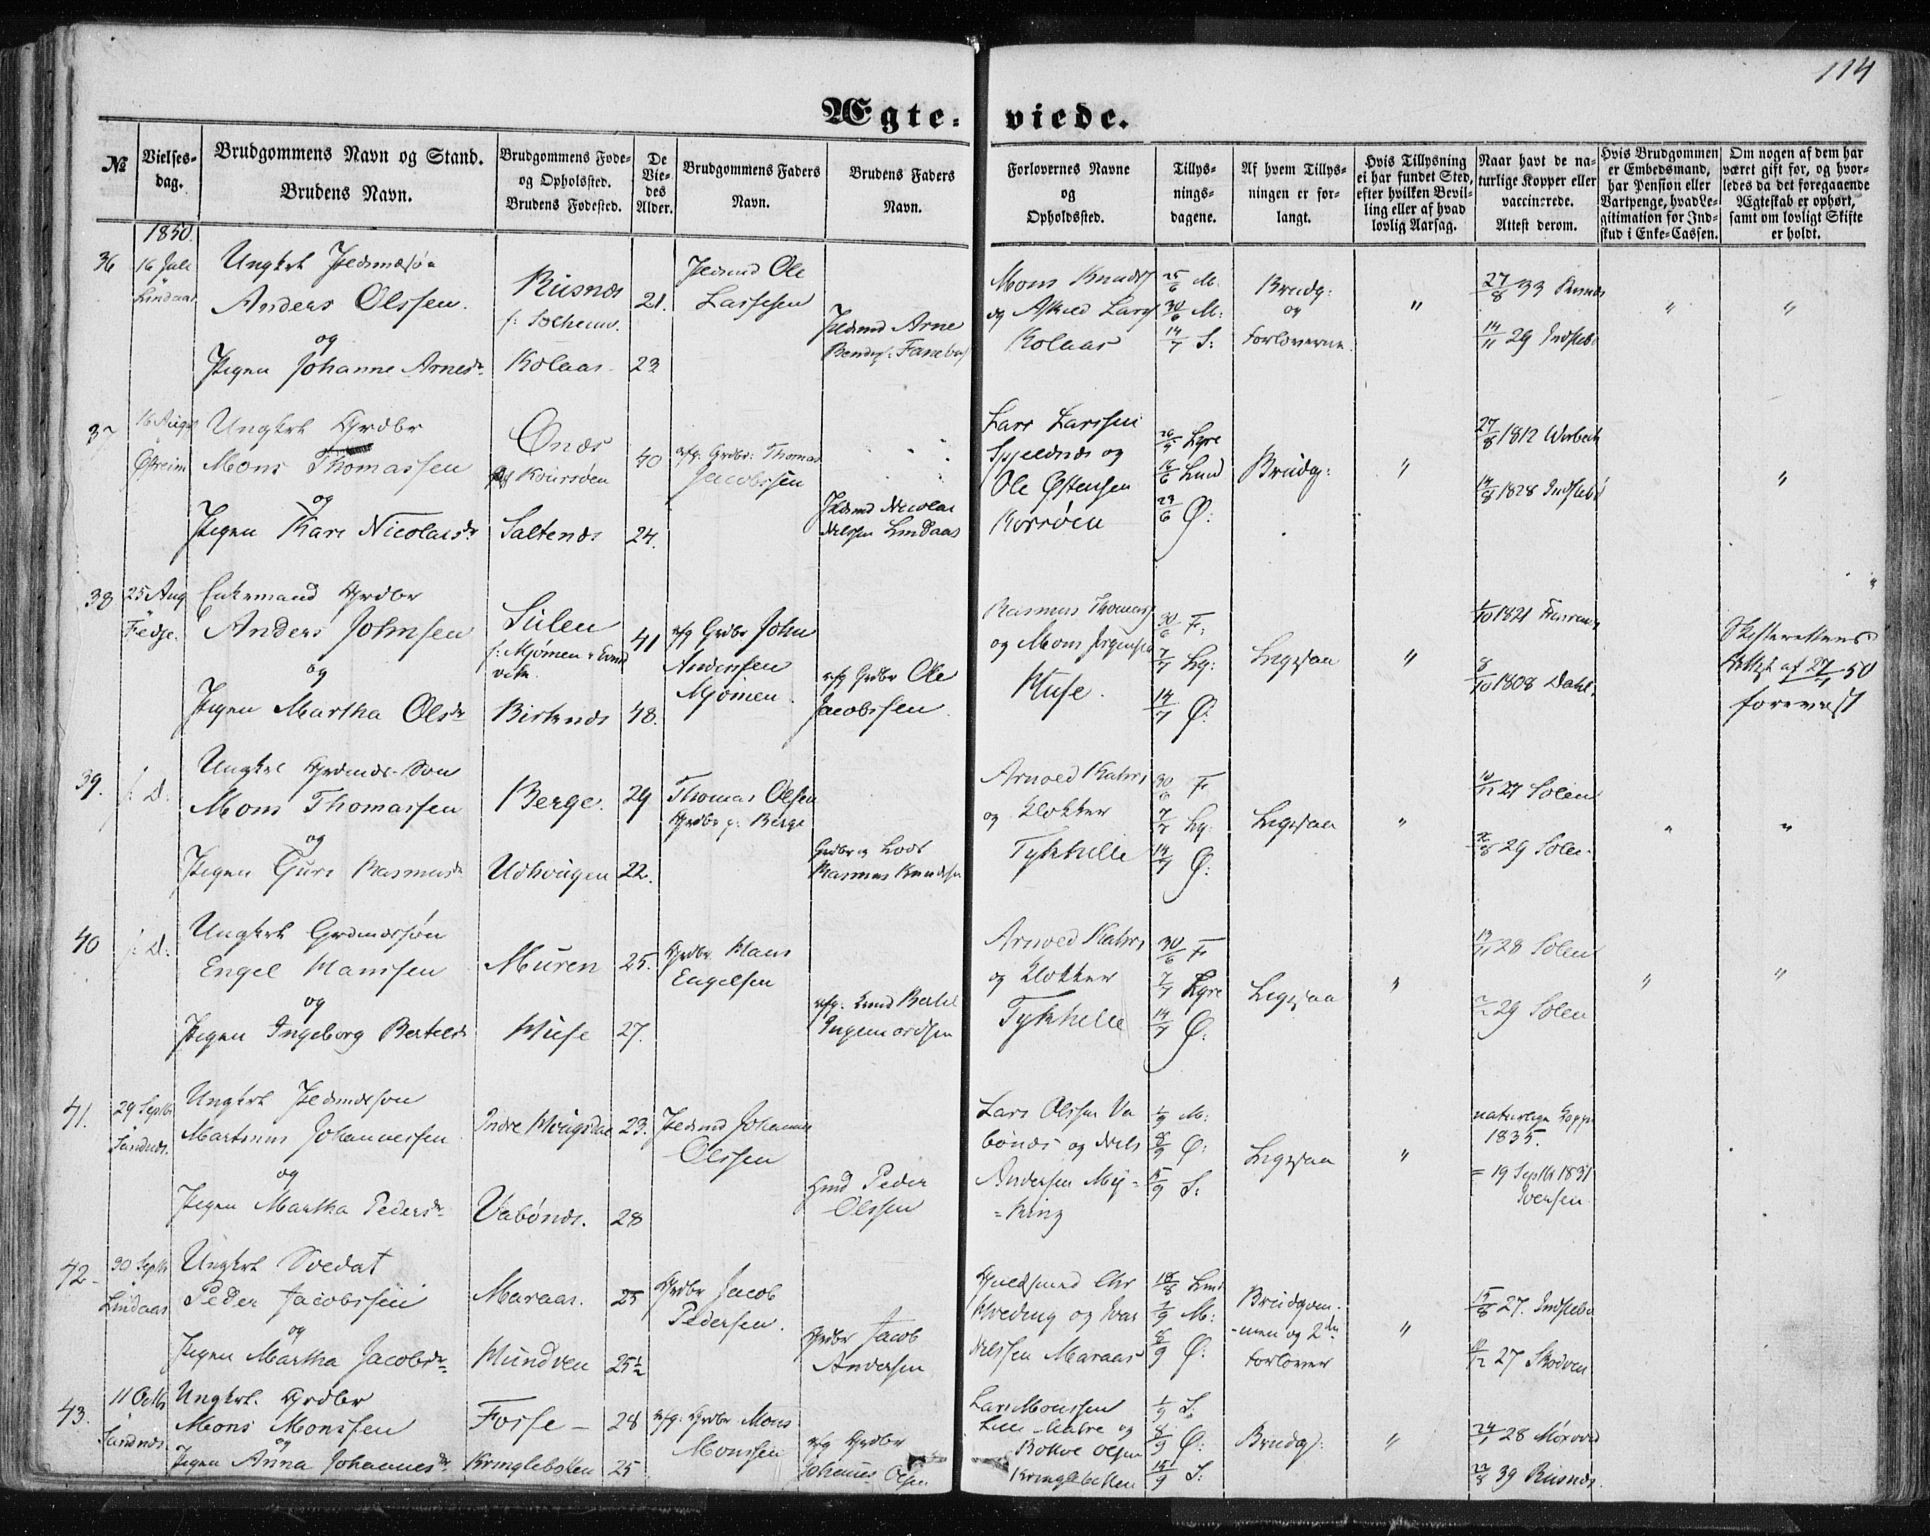 114
Ægte- viede.
№
Vielses-
dag.
Brudgommens Navn og Stand.
Brudens Navn.
Brudgommens Føde-
og Opholssted.
Brudens Fødested.
De
Vie-
des
Alder.
Brudgommens Faders
Navn.
Brudens Faders
Navn.
Forlovernes Navne
og
Opholdssted.
Tillys-
nings-
dagene.
Af hvem Tillys-
ningen er for-
langt.
Hvis Tillysning
ei har fundet Sted,
efter hvilken Bevil-
ling eller af hvad
lovlig Aarsag.
Naar havt de na-
turlige Kopper eller
vaccinerede.
Attest derom.
Hvis Brudgommen
er Embedsmand,
har Pension eller
Vartpenge, hvad Le-
gitimation for Ind-
skud i Enke-Cassen.
Om nogen af dem har
været gift før, og hvor-
ledes da det foregaaende
Ægteskab er ophørt,
samt om lovligt Skifte
er holdt.
1850.
36
16 Juli
Lindaas
Ungkrl
Anders Olssen.
og
Pigen Johanne Arnesdr
Risnæs
f: Solheim.
Kolaas
21.
23
Ole
Larssen
Arne
Mons Knuds
og Larss
Kolaas
25/6 M.
30/6 M:
14/7 S:
Brudg:
og
Forloverne.
"
27/8 33 Risnæs
14/11 29 Indstebø
"
"
37
16 Aug
Østreim
Ungkrl Grdbr
Mons Thomassen
og
Pigen Kari Nicolaisdr
Onæs
Saltenæs
40
24.
afg: Grdbr: Thomas
Jacobssen
Nicolai
Nilssen Lindaas
Lars Larssen
Spjeldnæs og
Ole Østensen
Korsøen
Lyre
16/6 Lind
23/6 Ø:
Brudg:
"
27/8 1812
1828 Indstebø
"
38
25 Aug
Fedje.
Enkemand Grdbr
Anders Johnsen
og
Pigen Martha Olsdr
Sulen
f: Mjømen i Evind
vik.
Birknæs
41
48.
afg Grdbr John
Anderssen
Mjømen.
afg Grdbr Ole
Jacobssen.
Rasmus Thomas
og Mons Jørgensen
Huse.
30/6 F:
7/7 Lg:
14/7 Ø:
Ligesaa
"
1821
8/10 1808 Dahl.
Skifterettens
Attest af 27/7 50
forevist
39.
f: D.
Ungkrl Grdmds-Søn
Mons Thomassen
og
Pigen Guri Rasmusdr
Berge.
Udvaagen
29
22.
Thomas Olsen
Grdbr p: Berge
Grdbr og Lods
Rasmus Knudsen
Arnold Kahrs
og Klokker
Tykhelle
30/6 F.
7/7 Lg.
14/7 Ø:
Ligesaa
"
21 Solen
29 Solen
"
"
40
f: D:
Ungkrl Grdmdssøn
Engel Hanssen
og
Pigen Ingeborg Bertelsdr
Muren
Huse
25.
27.
Grdbr Hans
Engelsen
afg: Hmd Bertel
Ingemordsen
Arnold Kahrs
og Klokker
Tykhelle
30/6 F
7/7 Lyre
14/7 Ø:
Ligesaa
"
28 Solen
29 Solen
"
"
41.
29 Septbr
Sandnæs.
Ungkrl
Martinus Johannessen
og
Pigen Martha Pedersdr
Indre
Vabønæs.
23.
28
Johannes
Olssen
Hmd Peder
Olssen
Lars Olssen Va
bønæs og Niels
Andersen My-
=king
1/9 M:
8/9 Ø:
15/9 S:
Ligesaa
"
naturlige Kopper
1835.
= 19 Septbr 1831
Iversen
42-
30 Septbr
Lindaas
Ungkrl Soldat
Peder Jacobssen
og
Pigen Martha Jacobsdr
Maraas.
Hundven
25
25½
Grdbr Jacob
Pedersen.
Grdbr Jacob
Andersen
Chr
Hveding og Ivar
Nilssen Maraas
18/8 Lind
1/9 M:
8/9 Ø:
Brudgom-
-men og 2den
Forlover
"
15/8 27. Indstebø
27 Skodven
43.
11 Octbr
Sandnæs
Ungkrl. Grdbr
Mons Monssen
og
Pigen Anna Johannesdr
Fosse -
Kringlebotten
28
25
afg: Grdbr Mons
Monssen
afg Grdbr
Johannes Olsen
Lars Monssen
Lille Matre og
Olsen
Kringlebotten
1/9 S:
8/9 Ø:
15/9 S:
Brudg:
"
28
22/8 39 Risnæs.